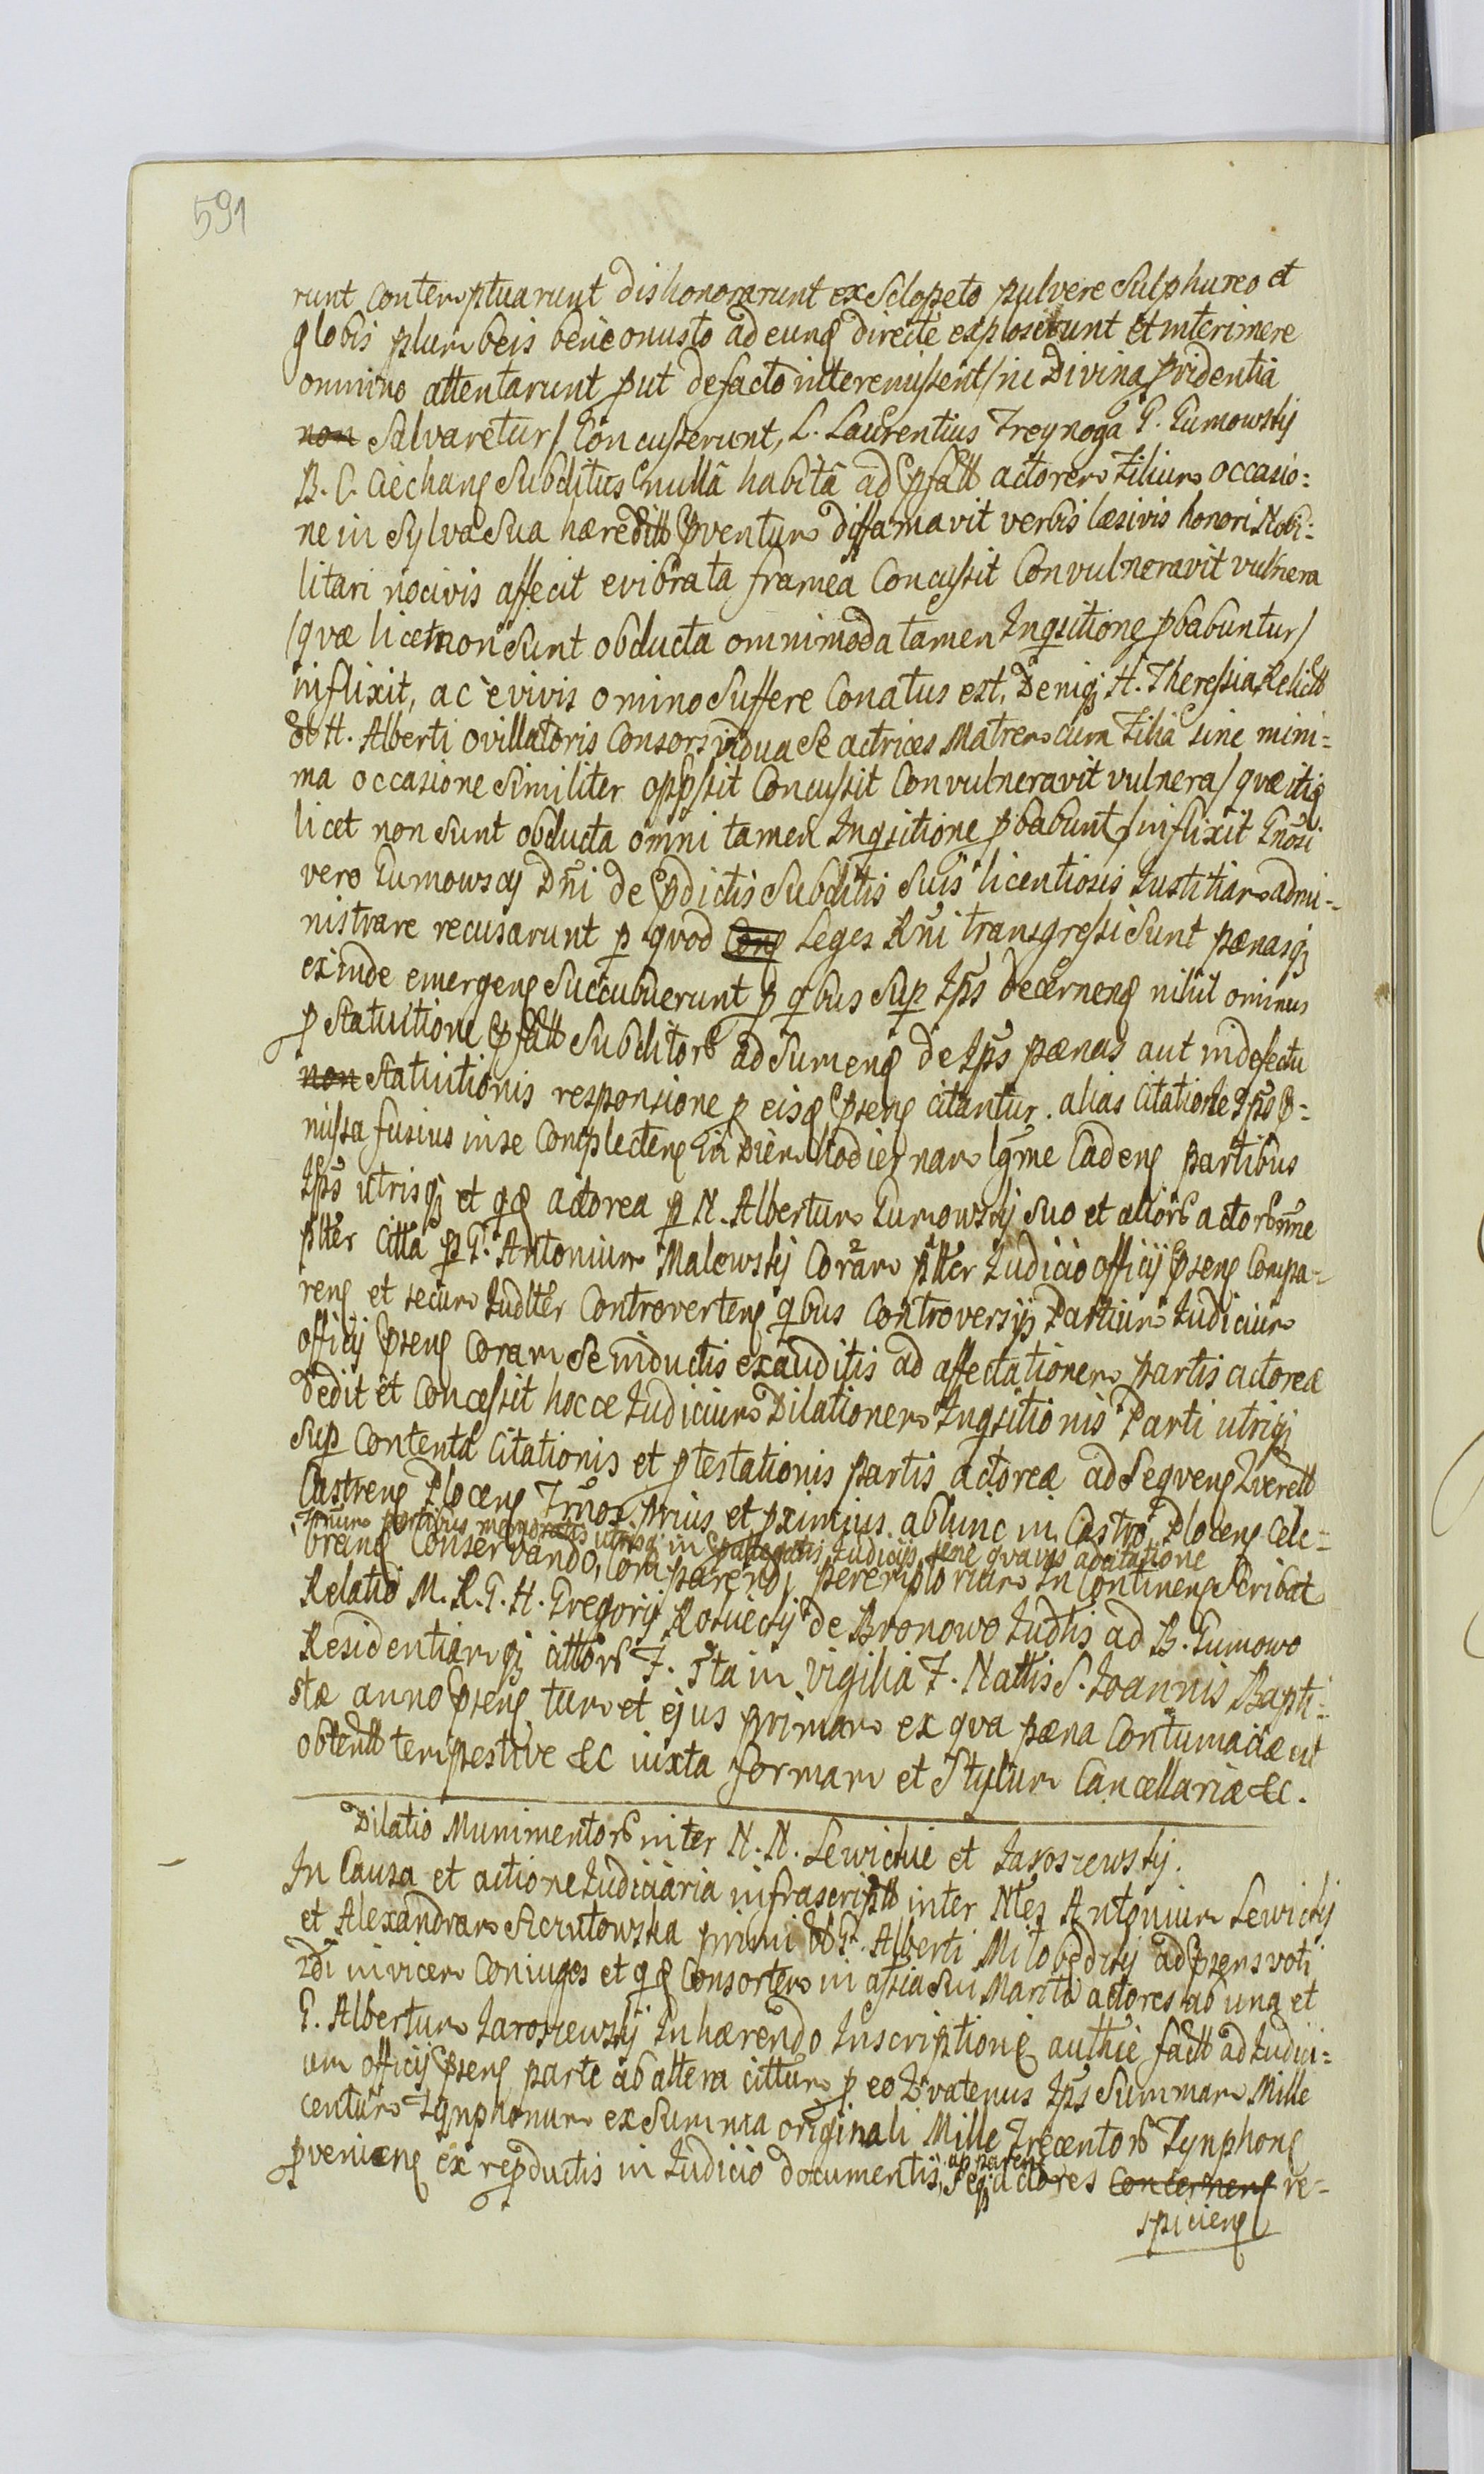 591
runt Contemptuarunt dishonorarunt ex Sclopeto pulvere Sulphureo et
globis plumbeis bene onusto ad eunq directe exploserunt et interimere
omnino attentarunt put defacto interemissent / ni Divina pvidentia
non Salvaretur / Concusserunt, L. Laurentius Treynoga G. Gumowskij
B. C. Ciechang Subditus nullâ habitâ ad psatt actorem Filium occasio:
ne in Sylva Sua hæreditt pventum diffamavit verbis læsivis honori Nobi:
litari nocivis affecit evibrata framea Concussit Convulneravit vulnera
/quæ licet non Sunt obducta omnimoda tamen Inqsitione pbabuntur/
inflixit, ac e vivis omino Suffere Conatus est, Deniq H. Theressia Relictt
ol H. Alberti ovillatoris Consors vidua Se actrices Matrem cum Filia sine mini=
ma occasione Similiter oppssit Concussit Convulneravit vulnera / quæ itiq
licet non Sunt obducta omni tamen Inqsitione pbabunt / inflixit Gnosi
vero Gumowscy Dni de pdictis Subditis Suis licentiosis Iustitiam admi=
nistrare recusarunt p quod Conq Leges Rni transgressi Sunt pænasq
exinde emergenq Succubuerunt p qbus Sup Ips decernenq nihil ominus
p Statuitione psatt Subditorƀ ad Sumenq de Ips pænas aut in defectu
non Statuitionis responsione p eisq psenq citantur. alias Citatione Ips p=
missa fusius in se Complectenq In Diem hodiernam lgme Cadenq partibus
Ips utrisq et qq actorea p N. Albertum Gumowskij Suo et aliorƀ actorƀ nne
plter citta p G. Antonium Malowskij Coram plter Iudicio officij psenq Compa=
renq et secum Iudlter Controvertenq qbus Controversijs Partium Iudicium
officij psenq Coram Se inductis exauditis ad affectationem partis actoreæ
dedit et Concessit hocce Iudicium Dilationem Inqsitionis Parti utriq
Sup Contenta Citationis et ptestationis partis actoreæ ad Seqvenq Querell
Castrenq Plocenq Trnos prius et pximius abhinc in Castro Plocenq Cele=
Tnum partibus memoratis utrisq in psallegatis Iudicijs sine quavis adcitatione
branq Conservando, Comparendi peremptorium In Continenq Scribat
Relatio M. R. G. H. Gregorij Rosciecki de Bronowo Iudlis ad B. Gumowo
Residentiamq cittorƀ F. 5ta in vigilia F. Nattis S. Joannis Bapti=
stæ anno psenq tum et ejus primam ex qva pæna Contumaciæ ut
obtentt tempestive &c iuxta formam et Stylum Cancellariæ &c.
Dilatio Munimentorƀ inter N. N. Lewickie et Jaroszewskij.
In Causa et actione Iudiciaria infrascriptt inter Ntes Antonium Lewickij
et Alexandram Skrutowska primi ol G. Alberti Milobedzkij ad psens voti
2di invicem Coniuges et qq Consortem in assia Sui Mariti actores ab una et
G. Albertum Jaroszewskij Inhærendo Inscriptionis authie factt ad Iudici=
um officij psenq parte ab altera cittum p eo Qvatenus Ips Summam Mille
centum Tynphonum ex Summa originali Mille Trecentorƀ Tynphonq
pvenienq ex repductis in Iudicio documentis, apparenq Seq actores Concernenq re=
spicienq